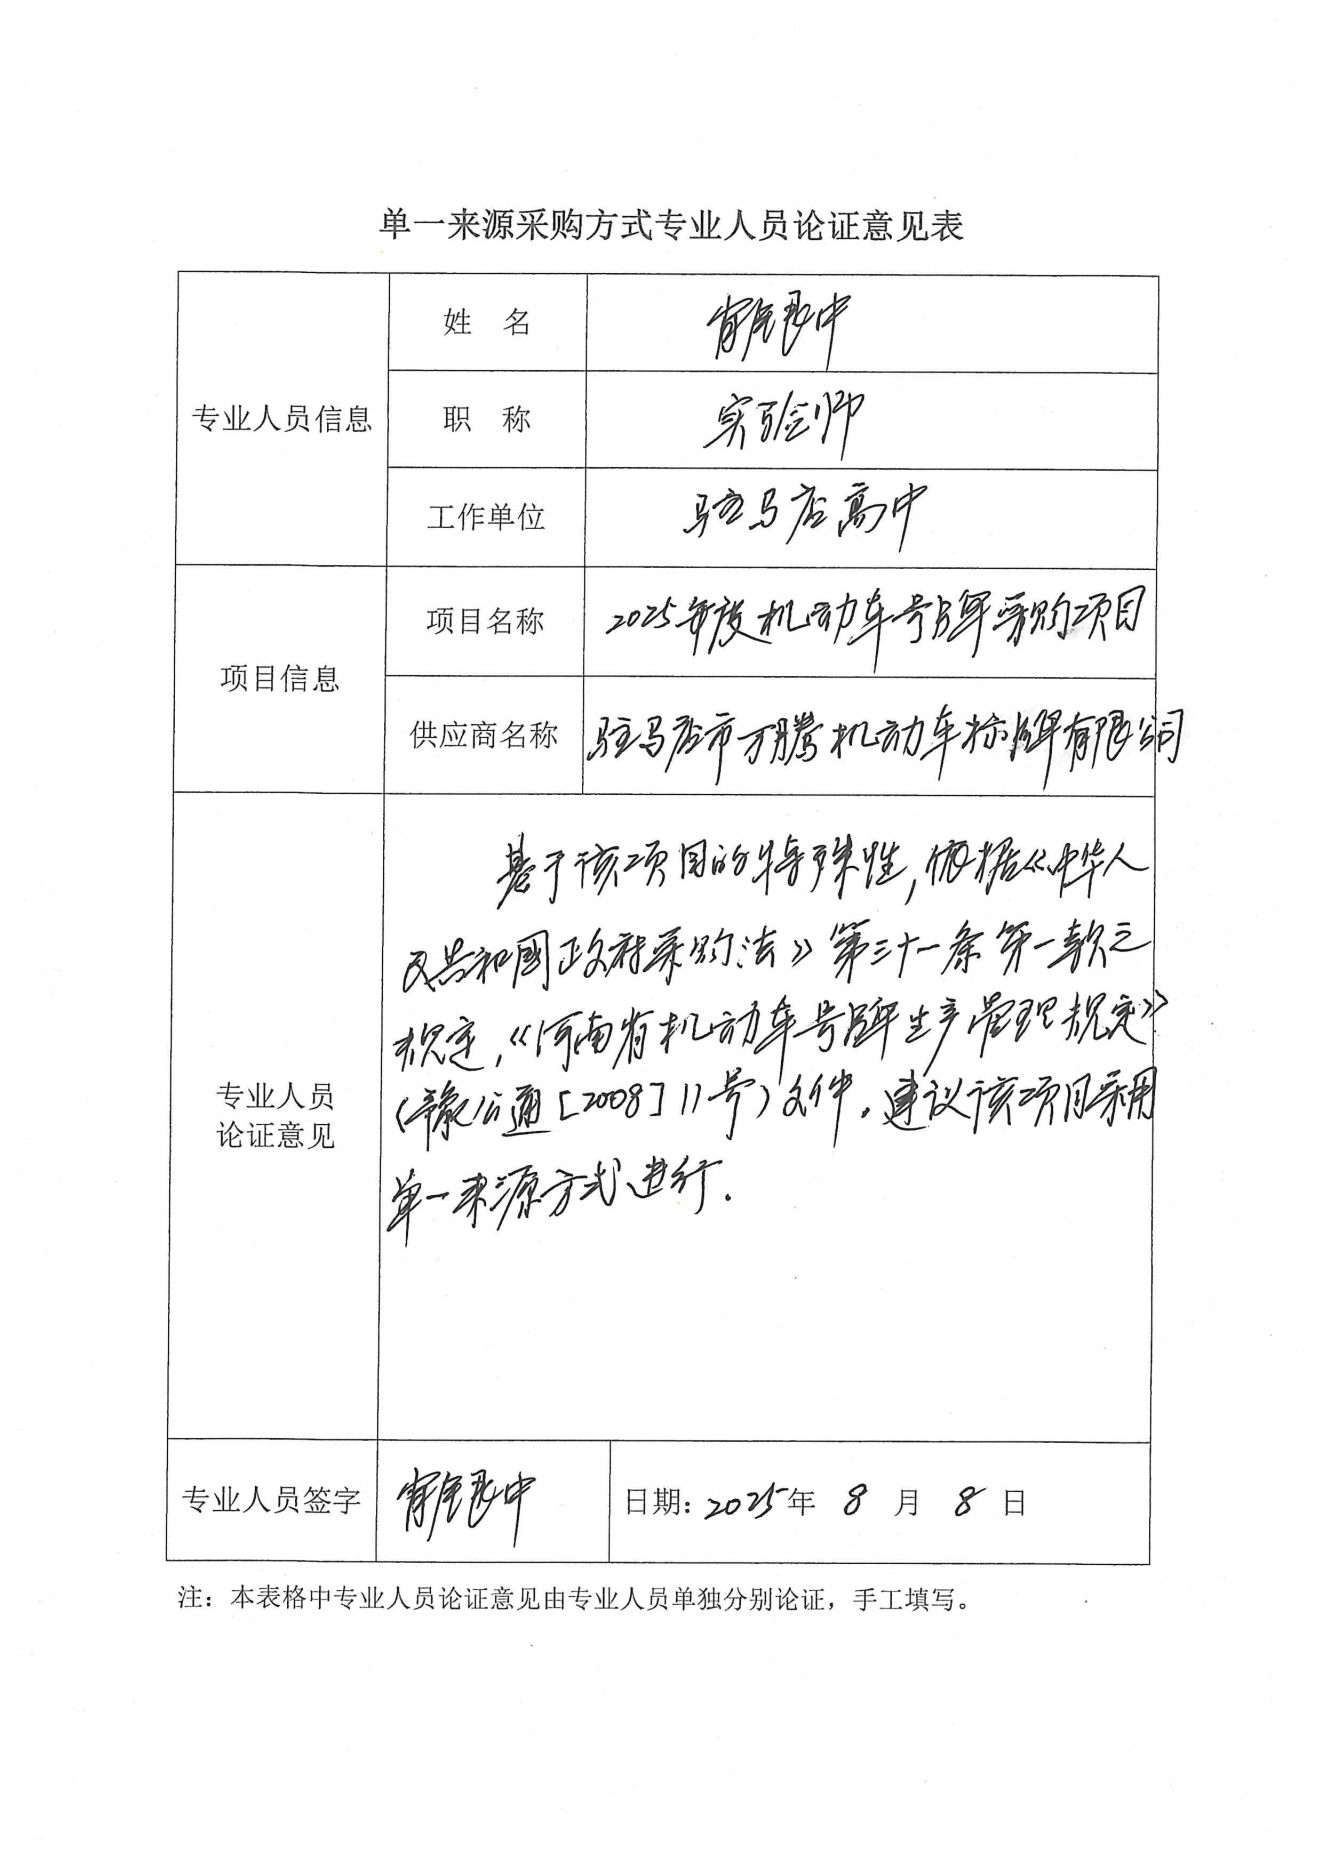 单一来源采购方式专业人员论证意见表
专业人员信息
姓 名
职 称
实验师
工作单位
驻马店高中
项目信息
项目名称
2025年度机动车号牌采购项目
供应商名称
驻马店市万腾机动车标牌有限公司
专业人员
论证意见
基于该项目的特殊性,依据《中华人
民共和國政府采购法》第三十一条第一款之
规定,《河南省机动车号牌生产管理规定》
(豫公通[2008]11号)文件。建议该项目采用
单一来源方式进行.
专业人员签字
日期: 2025年 8 月 8 日
注：本表格中专业人员论证意见由专业人员单独分别论证，手工填写。